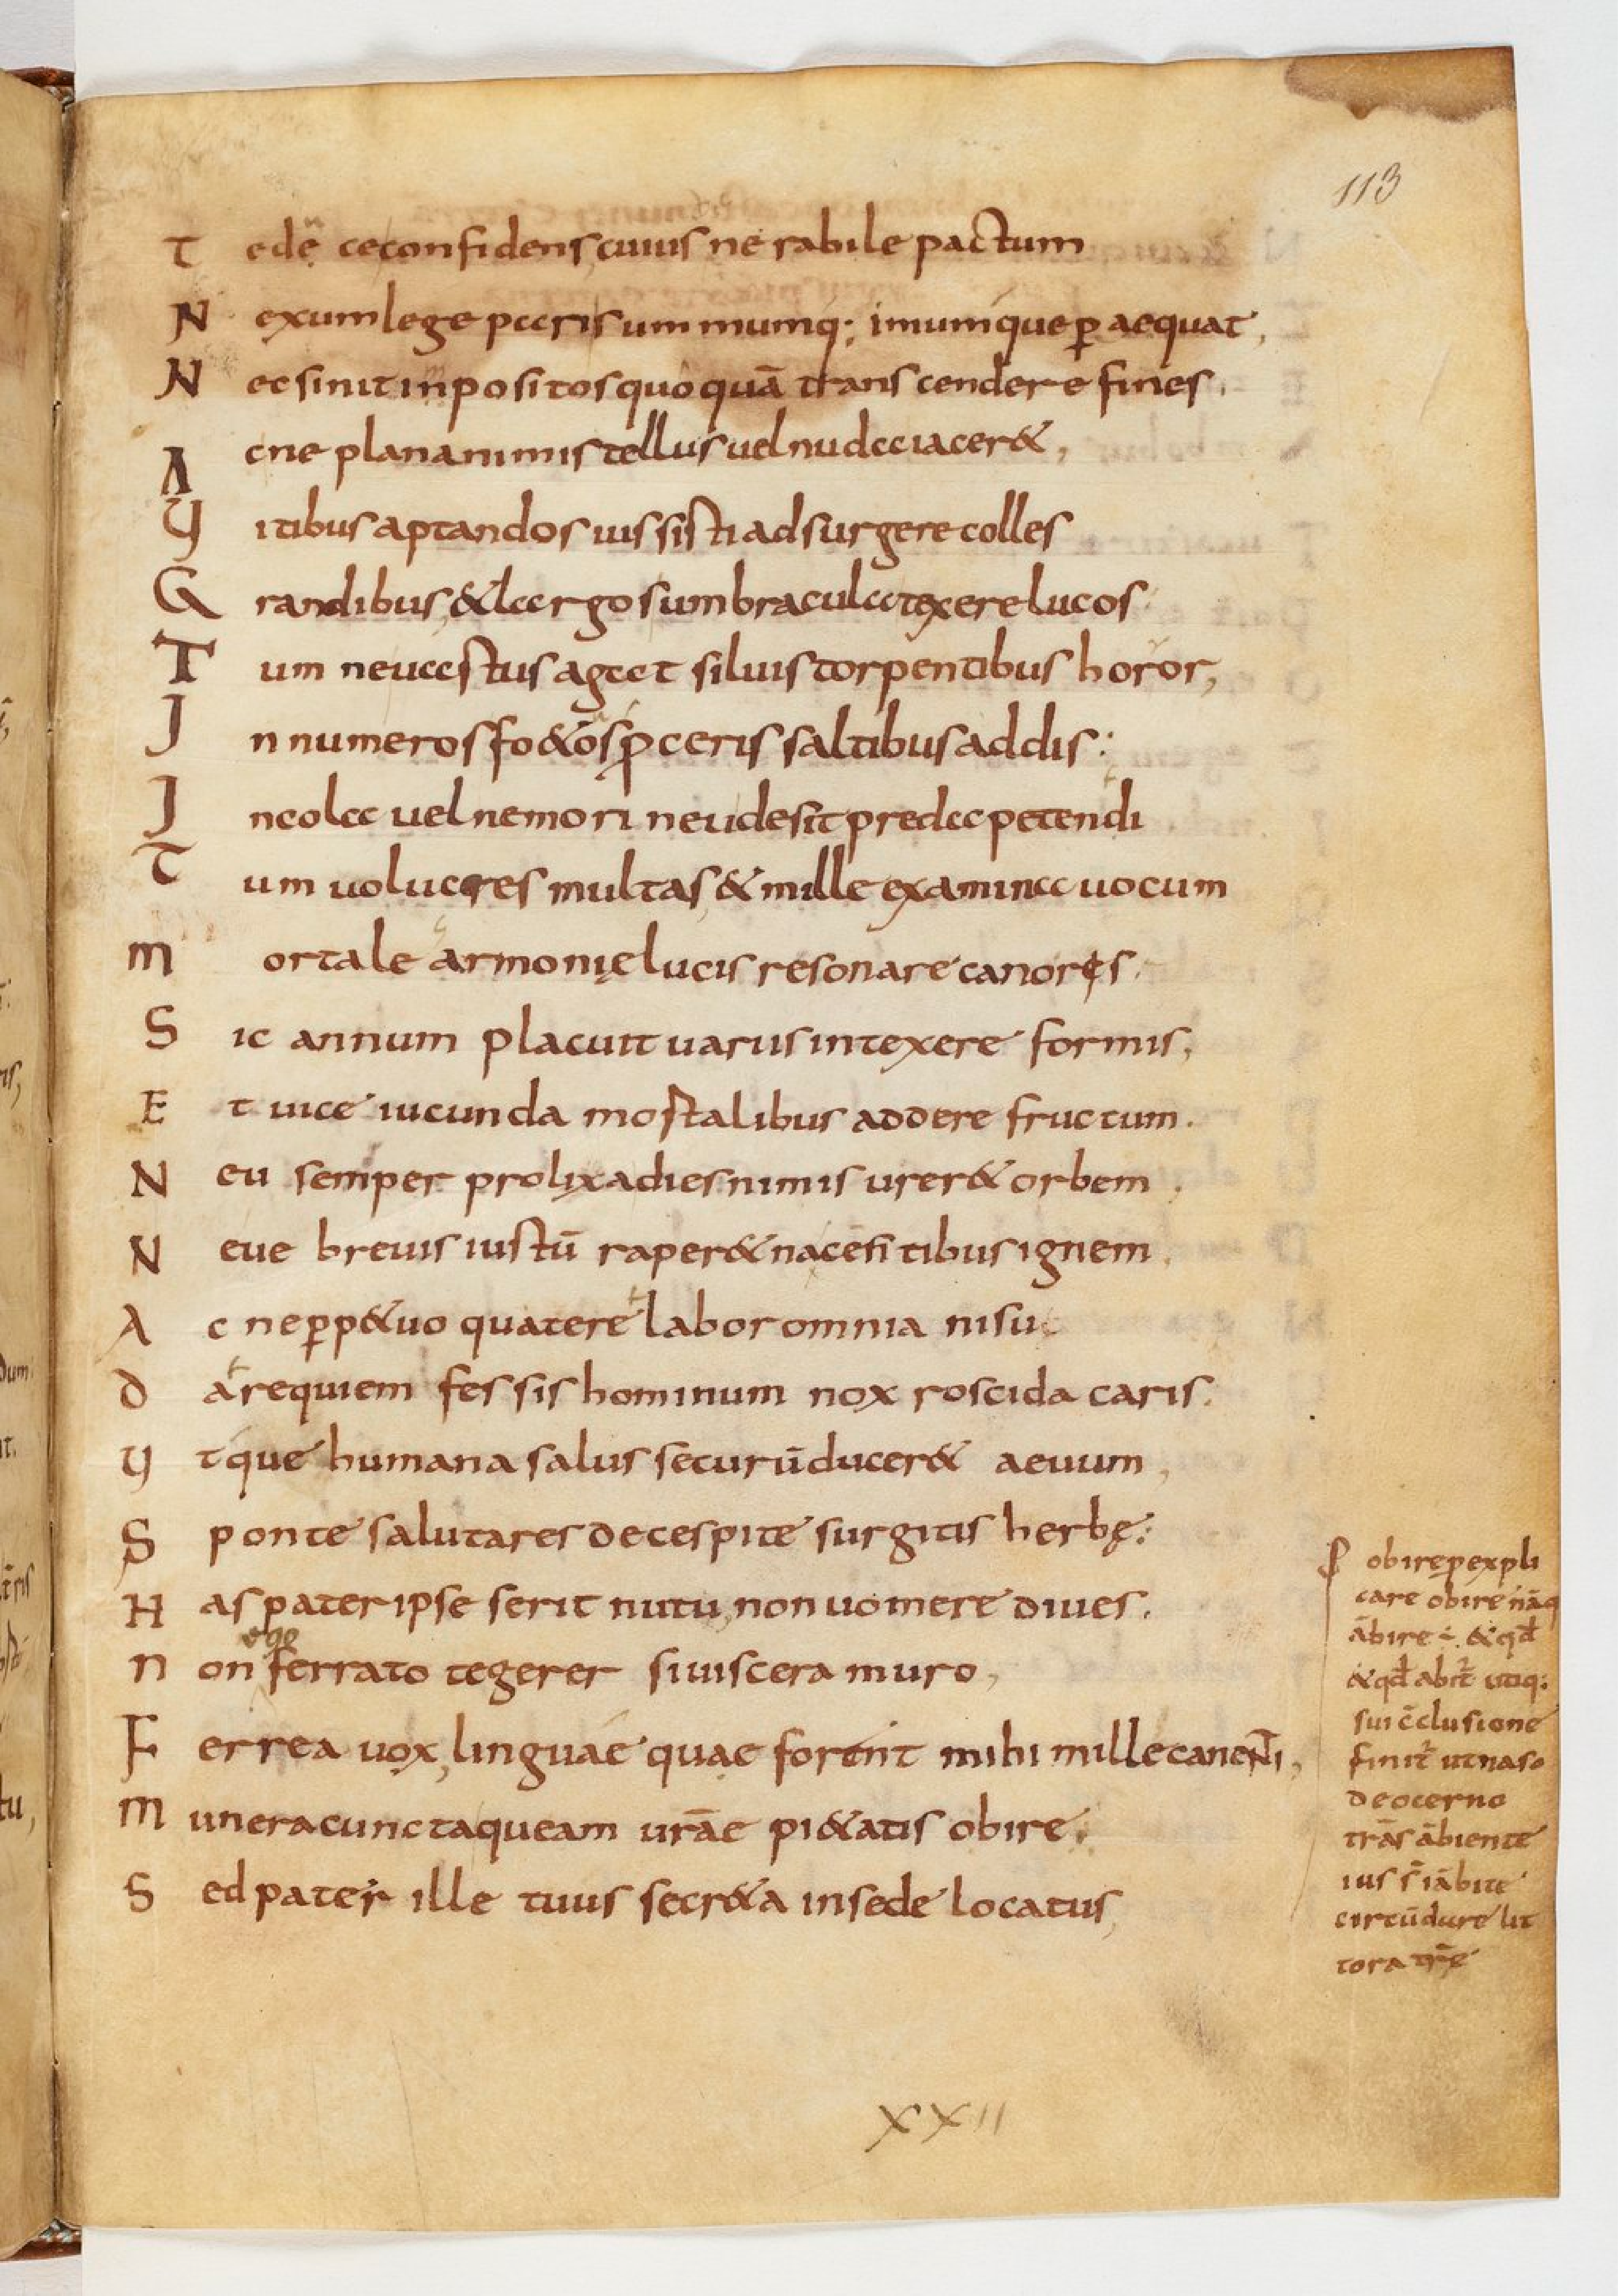 113
T edẽ ceconfidens, cuius ne rabile pactum
N exum lege paris ummumq; imumque ꝑ aequat,
N ec sinit inpositos quoquã transcendere fines.
A cne plana nimis tellus uel nuda iacer&,
Y itibus aptandos iussisti adsurgere colles
G randibus, & largos umbracula texere lucos
T um neuastus agat siluis torpentibus horror,
J n numeros fo&ꝰ ꝓceris saltibus addis:
J ncola uel nemori neu desit preda petendi
T um uolucres multas, & mille examina uocum
m ortale armonię lucis resonare canoręs.
S ic annum placuit uariis intexere formis,
E t uice iucunda mortalibus addere fructum.
N eu semper prolixa dies nimis urer& orbem
N eue breuis iustũ raper& nacẽntibus ignem.
A c ne ꝑp&uo quatere labor omnia nisu
D a requiem fessis hominum nox roscida caris.
Y t que humana salus securũ ducer& aeuum,
S ponte salutares de cespite surgitis herbę:
H as pater ipse serit nutu, non uomere diues.
ego
N on ferrato tegerer si uiscera muro,
F errea uox, linguae quae forent mihi mille canenti,
M unera cuncta queam urãe pi&atis obire.
S ed pater ille tuus secr&a in sede locatus,
obire p expli
care obire nãq
ãbire ÷. & qđ
& qđ abit utiq:
sui c̃clusione
finit̃ ut naso
de ocerno
trãs ãbiente
ius s̃ iãbite
circũdare lit
tora trẽ
XXII